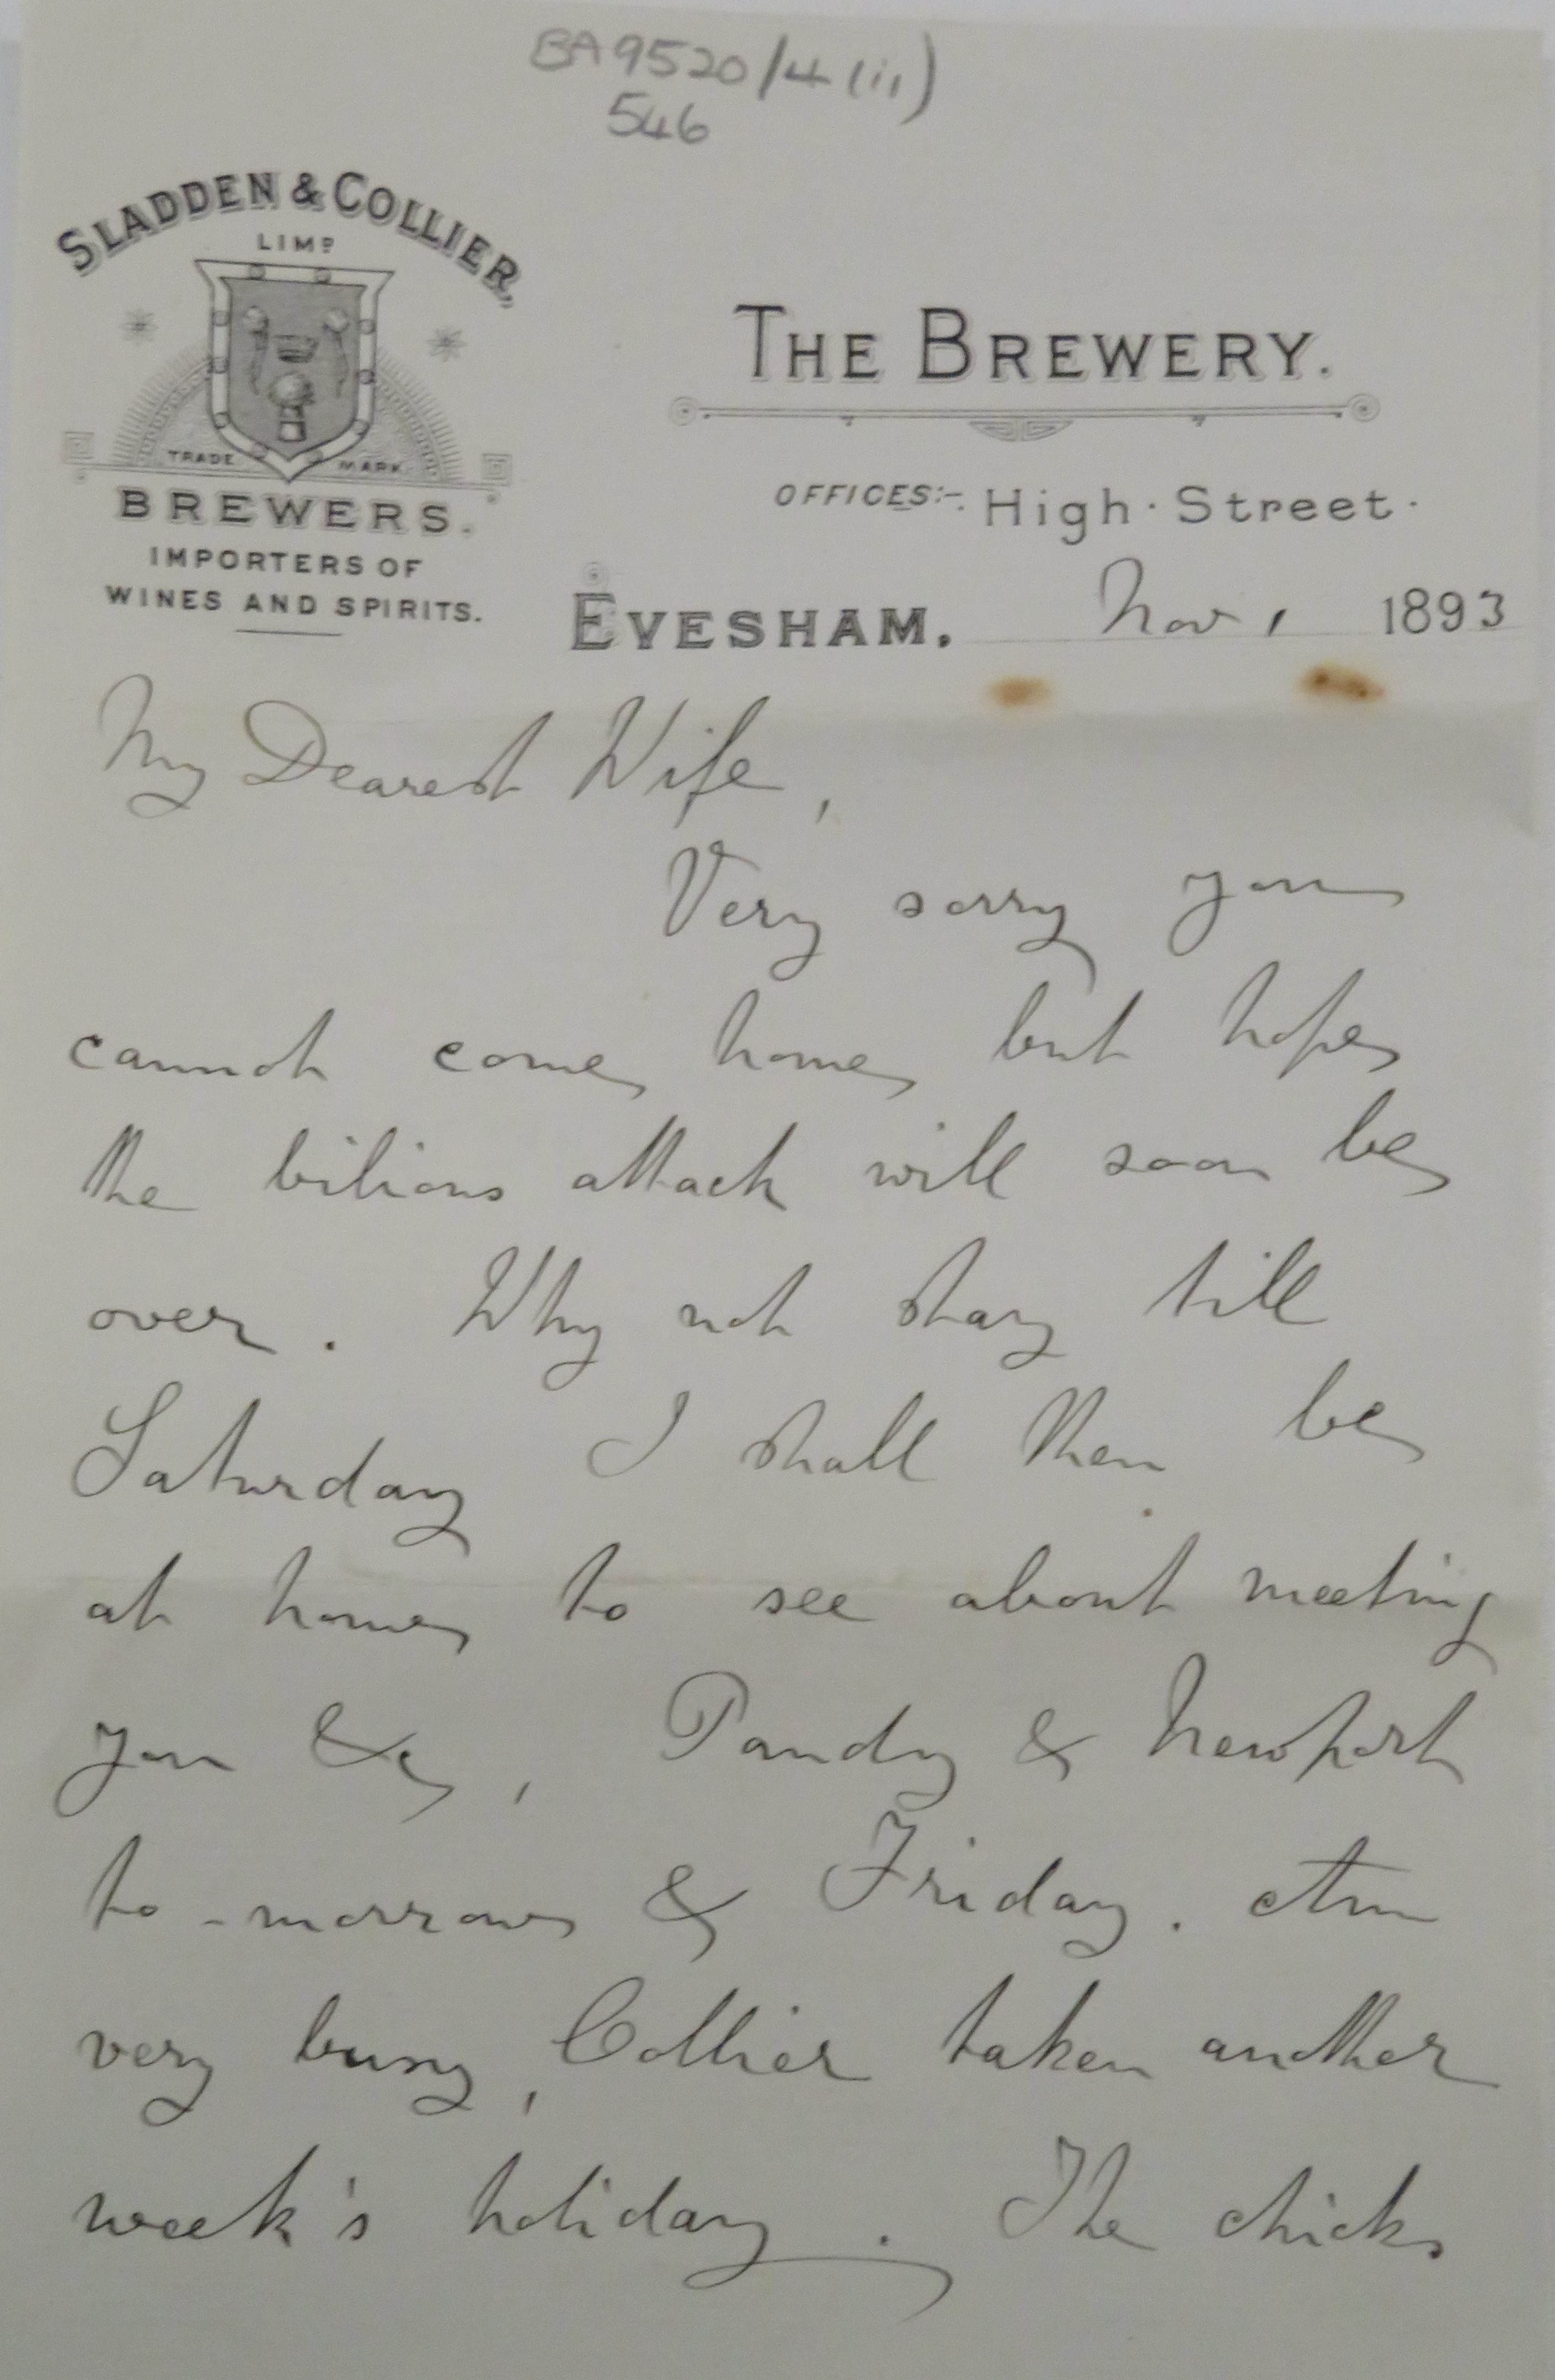 BA9520/4(ii)
546
SLADDEN & COLLIER,
LIMD
TRADE MARK.
BREWERS.
IMPORTERS OF
WINES AND SPIRITS.
THE BREWERY.
OFFICES:- High Street.
EVESHAM. Nov 1 1893
My Dearest Wife,
Very sorry you
cannot come home but hope
the bilious attack will soon be
over. Why not stay till
Saturday I shall then be
at home to see about meeting
you &c, Pandy & Newport
to-morrow & Friday. Am
very busy, Collier taken another
week's holiday. The chicks